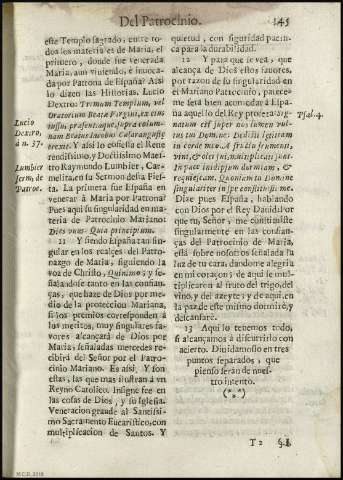 Del Patrocinio. 145
este Templo sagrado, entre todos
los materiales de Maria, el
primero, donde fue venerada
Maria, aun viviendo, è invocada
por Patrona de España? Assi
lo dizen las Historias. Lucio
Dextro: Primum Templum, vel
Oratorium Beatæ Virgini, ex eius
iussu, præsentaque, supra columnam
Beatus Iacobus Cæsaraugustæ
erexit. Y assi lo confiessa el Reverendissimo,
y Doctissimo Maestro
Raymundo Lumbier, Carmelita,
en su Sermon desta Fiesta.
La primera fue España en
venerar à Maria por Patrona?
Pues aqui su singularidad en materia
de Patrocinio Mariano:
Dies vnus: Quia principium.
11 Y siendo España tan singular
en los realçes del Patronazgo
de Maria, siguiendo la
voz de Christo, Quinimo; y señalandose
tanto en las confianças,
que haze de Dios por medio
de la proteccion Mariana,
si los premios corresponden à
los meritos, muy singulares favores
alcançarà de Dios por
Maria; señaladas mercedes recibirà
del Señor por el Patrocinio
Mariano. Es assi; Y son
estas, las que mas ilustran à vn
Reyno Catolico. Insigne fue en
las cosas de Dios, y su Iglesia.
Veneracion grande al Santissimo
Sacramento Eucaristico, con
multiplicacion de Santos. Y
Lucio
Dextro,
à n. 37.
Lumbier
Serm. de
Patroc.
quietud, con siguridad pacifica
para la durabilidad.
12 Y para que se vea, que
alcança de Dios estos favores,
por razon de su singularidad en
el Mariano Patrocinio, pareceme
serà bien acomodar à España
aquello del Rey profeta: Signatum
est super nos lumen vultus
tui Domine: Dedisti lætitiam
in corde meo. A fructu frumenti,
vini, & olei sui, multiplicati sunt.
In pace in idipsum dormiam, &
requiescam. Quoniam tu Domine
singulariter in spe constituisti me.
Dize pues España, hablando
con Dios por el Rey David: Porque
tu, Señor, me constituiste
singularmente en las confianças
del Patrocinio de Maria,
està sobre nosotros señalada la
luz de tu cara, dandome alegria
en mi coraçon; de aqui se multiplicaron
al fruto del trigo, del
vino, y del azeyte; y de aqui, en
la paz de este mismo dormirè, y
descansarè.
13 Aqui lo tenemos todo,
si alcançamos à discurrirlo con
acierto. Dividamoslo en tres
puntos separados, que
pienso seràn de nuestro
intento.
(***)
Psal. 4.
T 2 §. I.